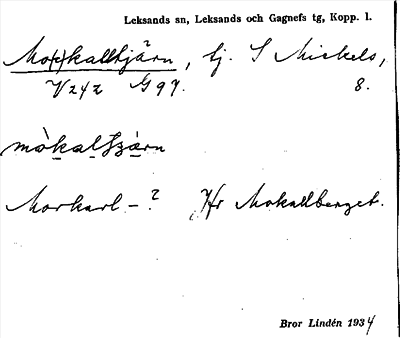 Leksands sn, Leksands och Gagnefs tg, Kopp. l.
Mo(r)kalltjärn, tj. S Mickels,
V242 G97. 8.
mòkaltjärn
Morkarl – ? Jfr Mokallberget.
Bror Lindén 1934